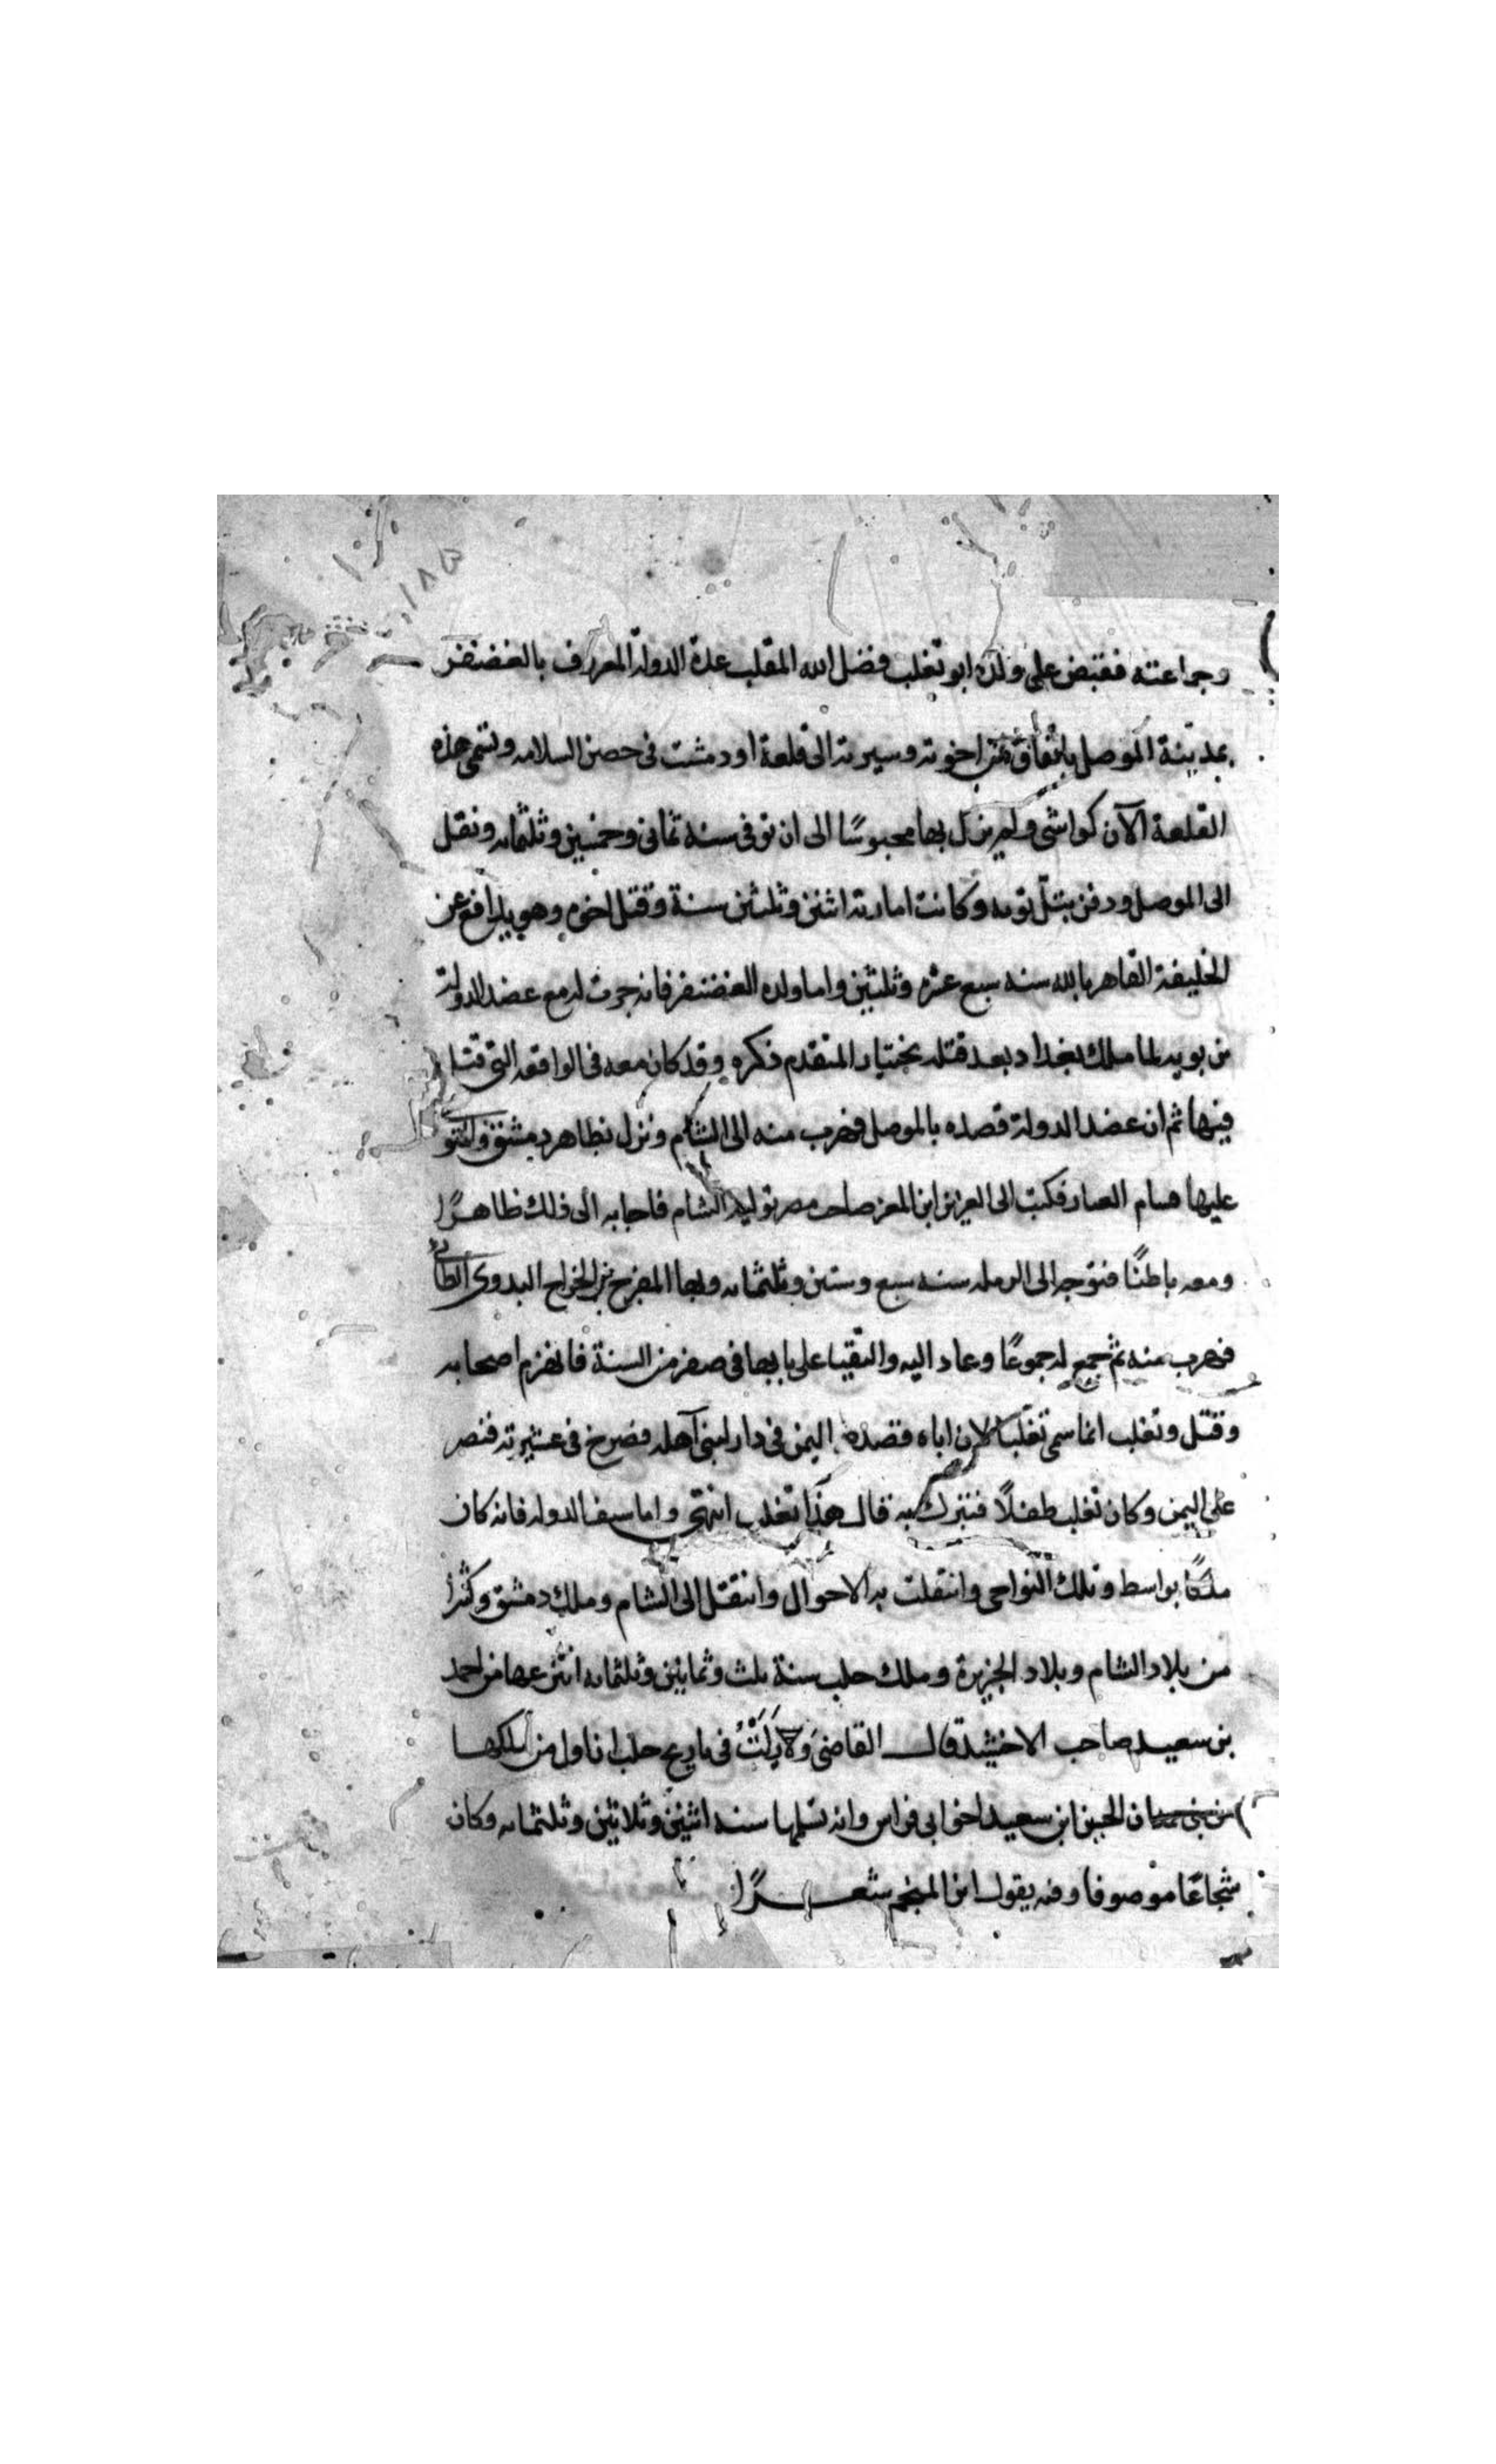 ١٨٥
وجماعته فقبض على ولده ابو تغلب فضل الله الملقب عدة الدولة المعروف بالغضنفر
بمدينة الموصل باتفاق من اخوته وسيرته الى قلعة اردمشت فى حصن السلامه وتسمى هذه
القلعة الآن كواشى ولم يزل بها محبوسًا الى ان توفى سنه ثمانى وخمسين وثلثمائه ونقل
الى الموصل ودفن بتلّ توبه وكانت امارته اثنين وثلثين سنة وقتل اخوه وهو يدافع عن
الخليفة القاهر بالله سنه سبع عشره وثلثين واما ولده الغضنفر فانه جرت له مع عضد الدولة
من بويه لما ملك بغداد بعد قتله بختيار المتقدم ذكره وقد كان معه فى الواقعه التى قتل
فيها ثم ان عضد الدولة قصده بالموصل فهرب منه الى الشام ونزل بظاهر دمشق
عليها فكتب الى العزيز ابن المعز صاحب مصر توليه الشام فاجابه الى ذلك ظاهرًا
ومعه باطنًا فتوجه الى الرمله سنه سبع وستين وثلثمائه وبها المفرج بن الجراح البدوى الطائى
فهرب منه ثم جمع له جموعًا وعاد اليه والتقيا على بابها فى صفر من السنة فانهزم اصحابه
وقتل وتغلب انما سمى تغلبا لان اباه قصده اليمن فى دار لبنى آهله فصرخ فى عشيرته فنصر
على اليمن وكان تغلب طفلًا فتبرك به قال هذا تغلب انتهى واما سيف الدوله فانه كان
ملكًا بواسط وتلك النواحى وانتقلت به الاحوال وانتقل الى الشام وملك دمشق وكثيرًا
من بلاد الشام وبلاد الجزيرة وملك حلب سنة ثلث وثمانين وثلثمائه انتزعها من احمد
بن سعيد صاحب الاخشيد قال القاضى فى تاريخ حلب ان اول من ملكها
من بنى حمدان الحسين ابن سعيد اخو ابى فراس وانه تسلمها سنه اثنين وثلاثين وثلثمائه وكان
شجاعًا موصوفا وفيه يقول ابن المنجم شعرًا